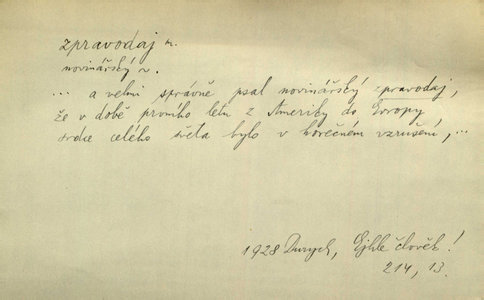 zpravodaj m.
novinářský z.
... a velmi správně psal novinářský zpravodaj,
že v době prvního letu z Ameriky do Evropy
srdce celého světa bylo v horečném vzrušení, ...
1928 Durych, Ejhle člověk!
214, 13.